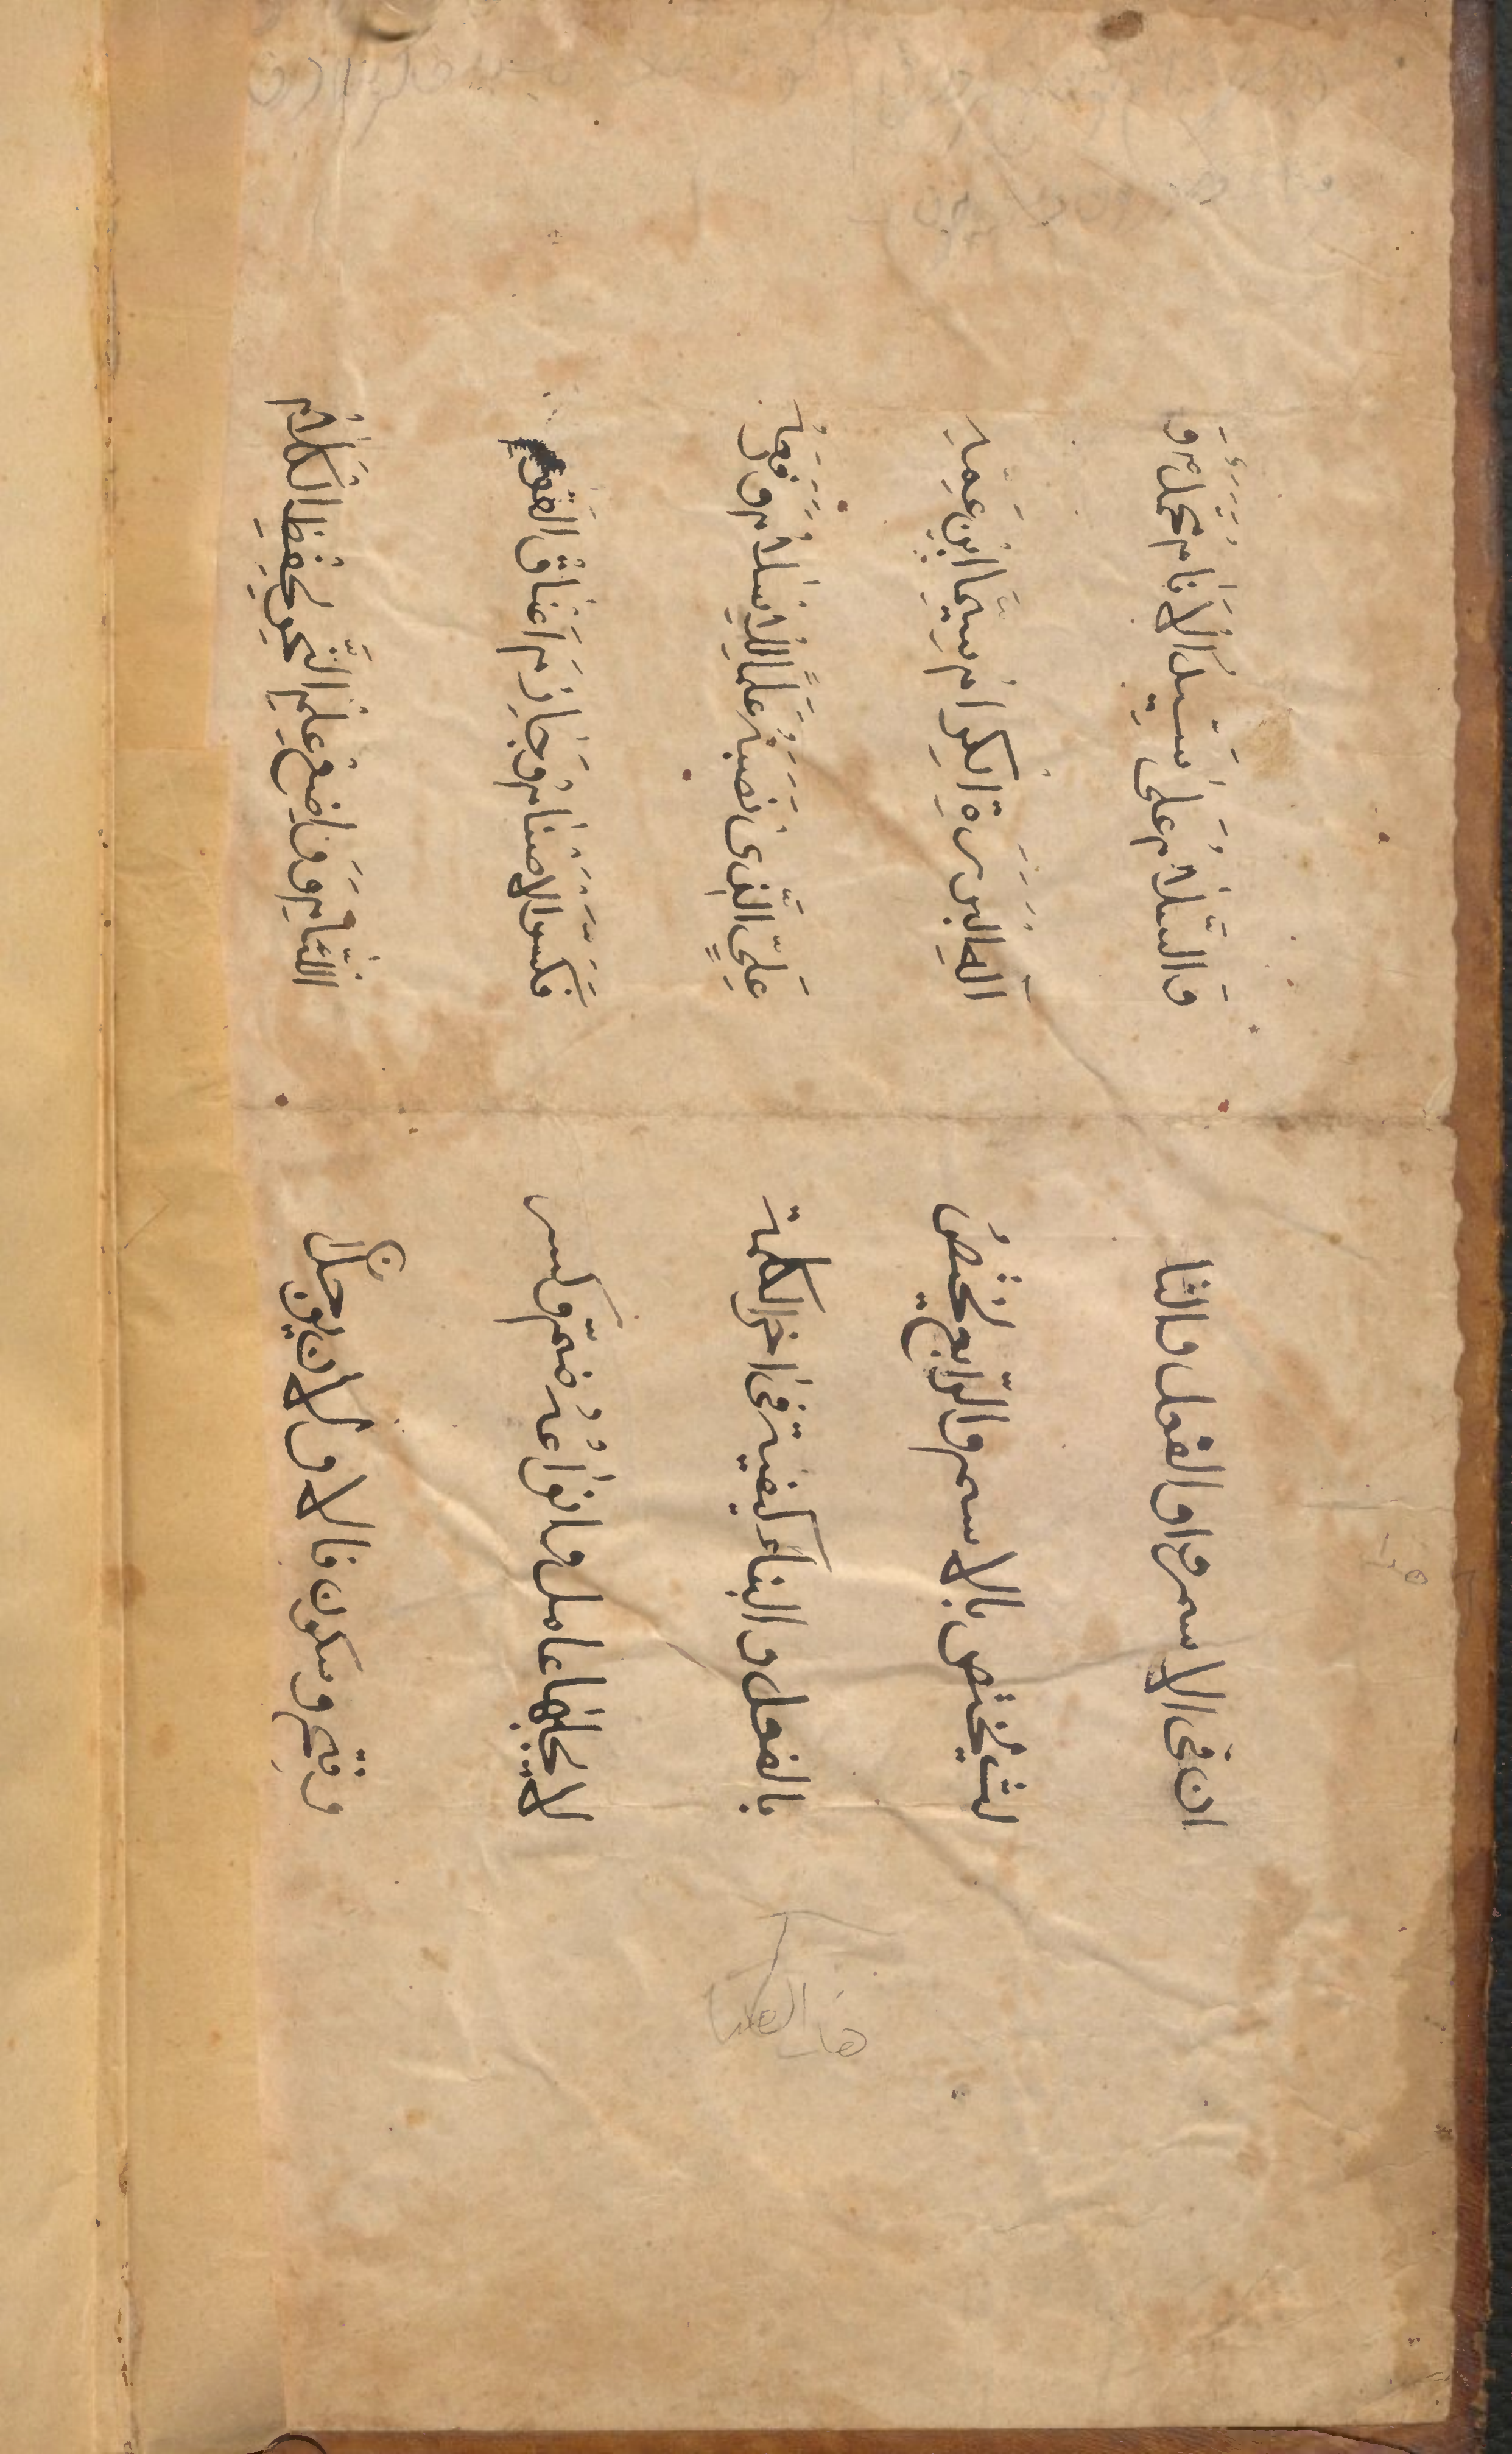 ان فى الاسم والفعل والثا
لث يختص بالاسم والرّابع يختصّ
بالفعل والبناء كيفية فى اخر الكلمة
لا يجلبها عامل وانواعه ضمّ وكسر
وفتح وسكون فالاولان يوجدان
وَالسَّلامُ عَلىٰ سَيِّدِ الاَنامِ مُحَمَّدٍ وَ
آلِهِ البَرَرَةِ الكِرامِ سِيَّمَا ابْنِ عَمِّهِ
عَلِىٍّ الَّذى نَصَبَهُ عَلَماً لِلْاِسْلامِ وَرَفَعَهُ
لكسر الاصنام وَجازم اَعْناق القوم
اللّئامِ وَ وَاضِعِ عِلْمِ النَّحْوِ لِحِفْظِ الكَلامِ
هذا